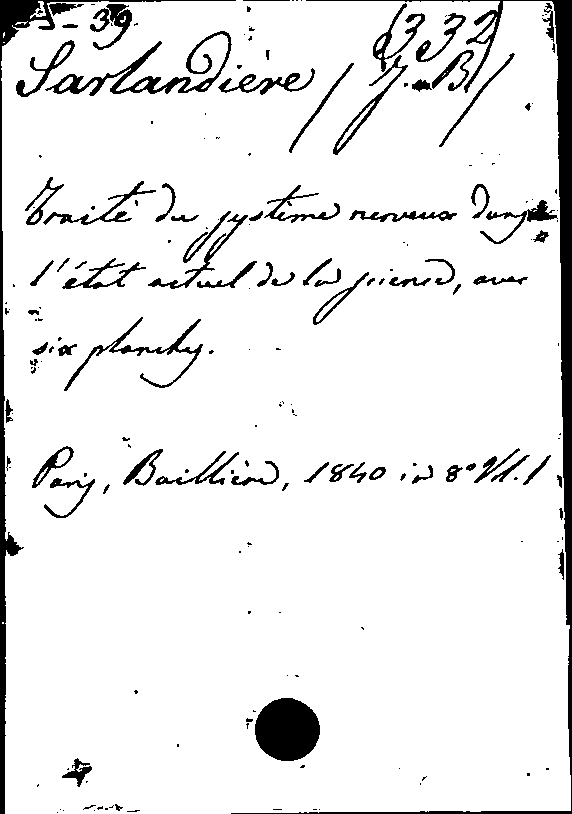 J-39 (332)
Sarlandière (J.-B)
Traité du système nerveux dans
l'état actuel de la science, avec
six planches.
Paris, Baillière, 1840 in 8° Vl. 1